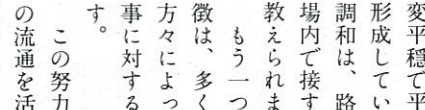 変平穏で平
形成してい
調和は、路
場内で接す
教えられま
もう一つ
徴は、多く
方々によっ
事に対する
す。
この努力
の流通を活